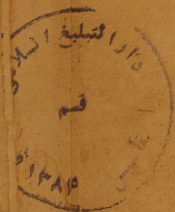 دارالتبلیغ اسلامی
قسم
۱۳۸۴